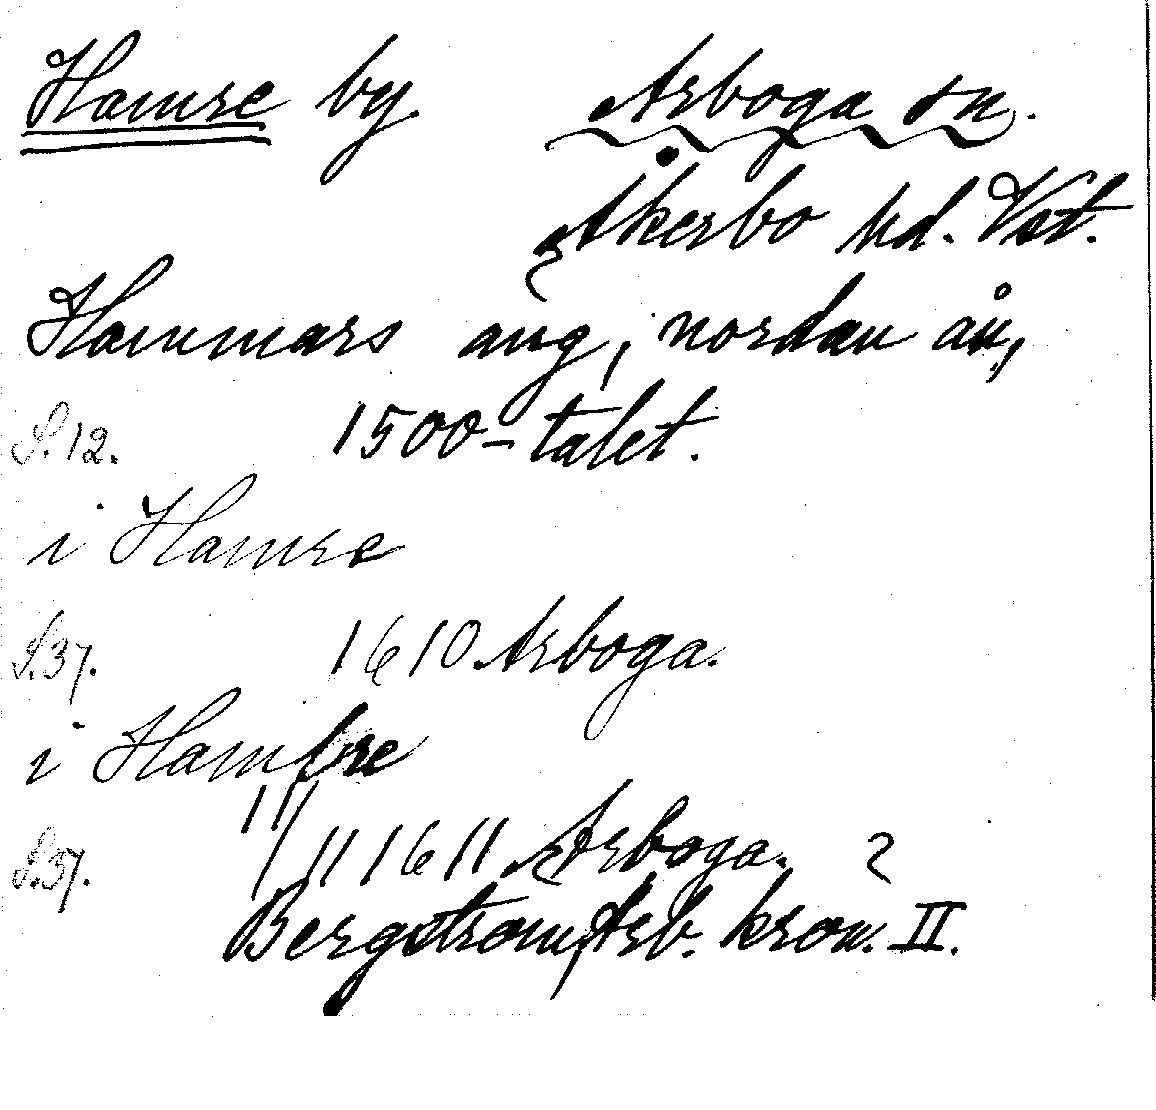 Hamre by. Arboga sn.
Åkerbo hd. Vst.
Hammars äng, nordan ån,
S. 12. 1500-talet.
i Hamre
S. 37. 1610 Arboga.
i Hambre
S. 37. 11/11 1611 Arboga.
Bergström, Arb. krön. II.